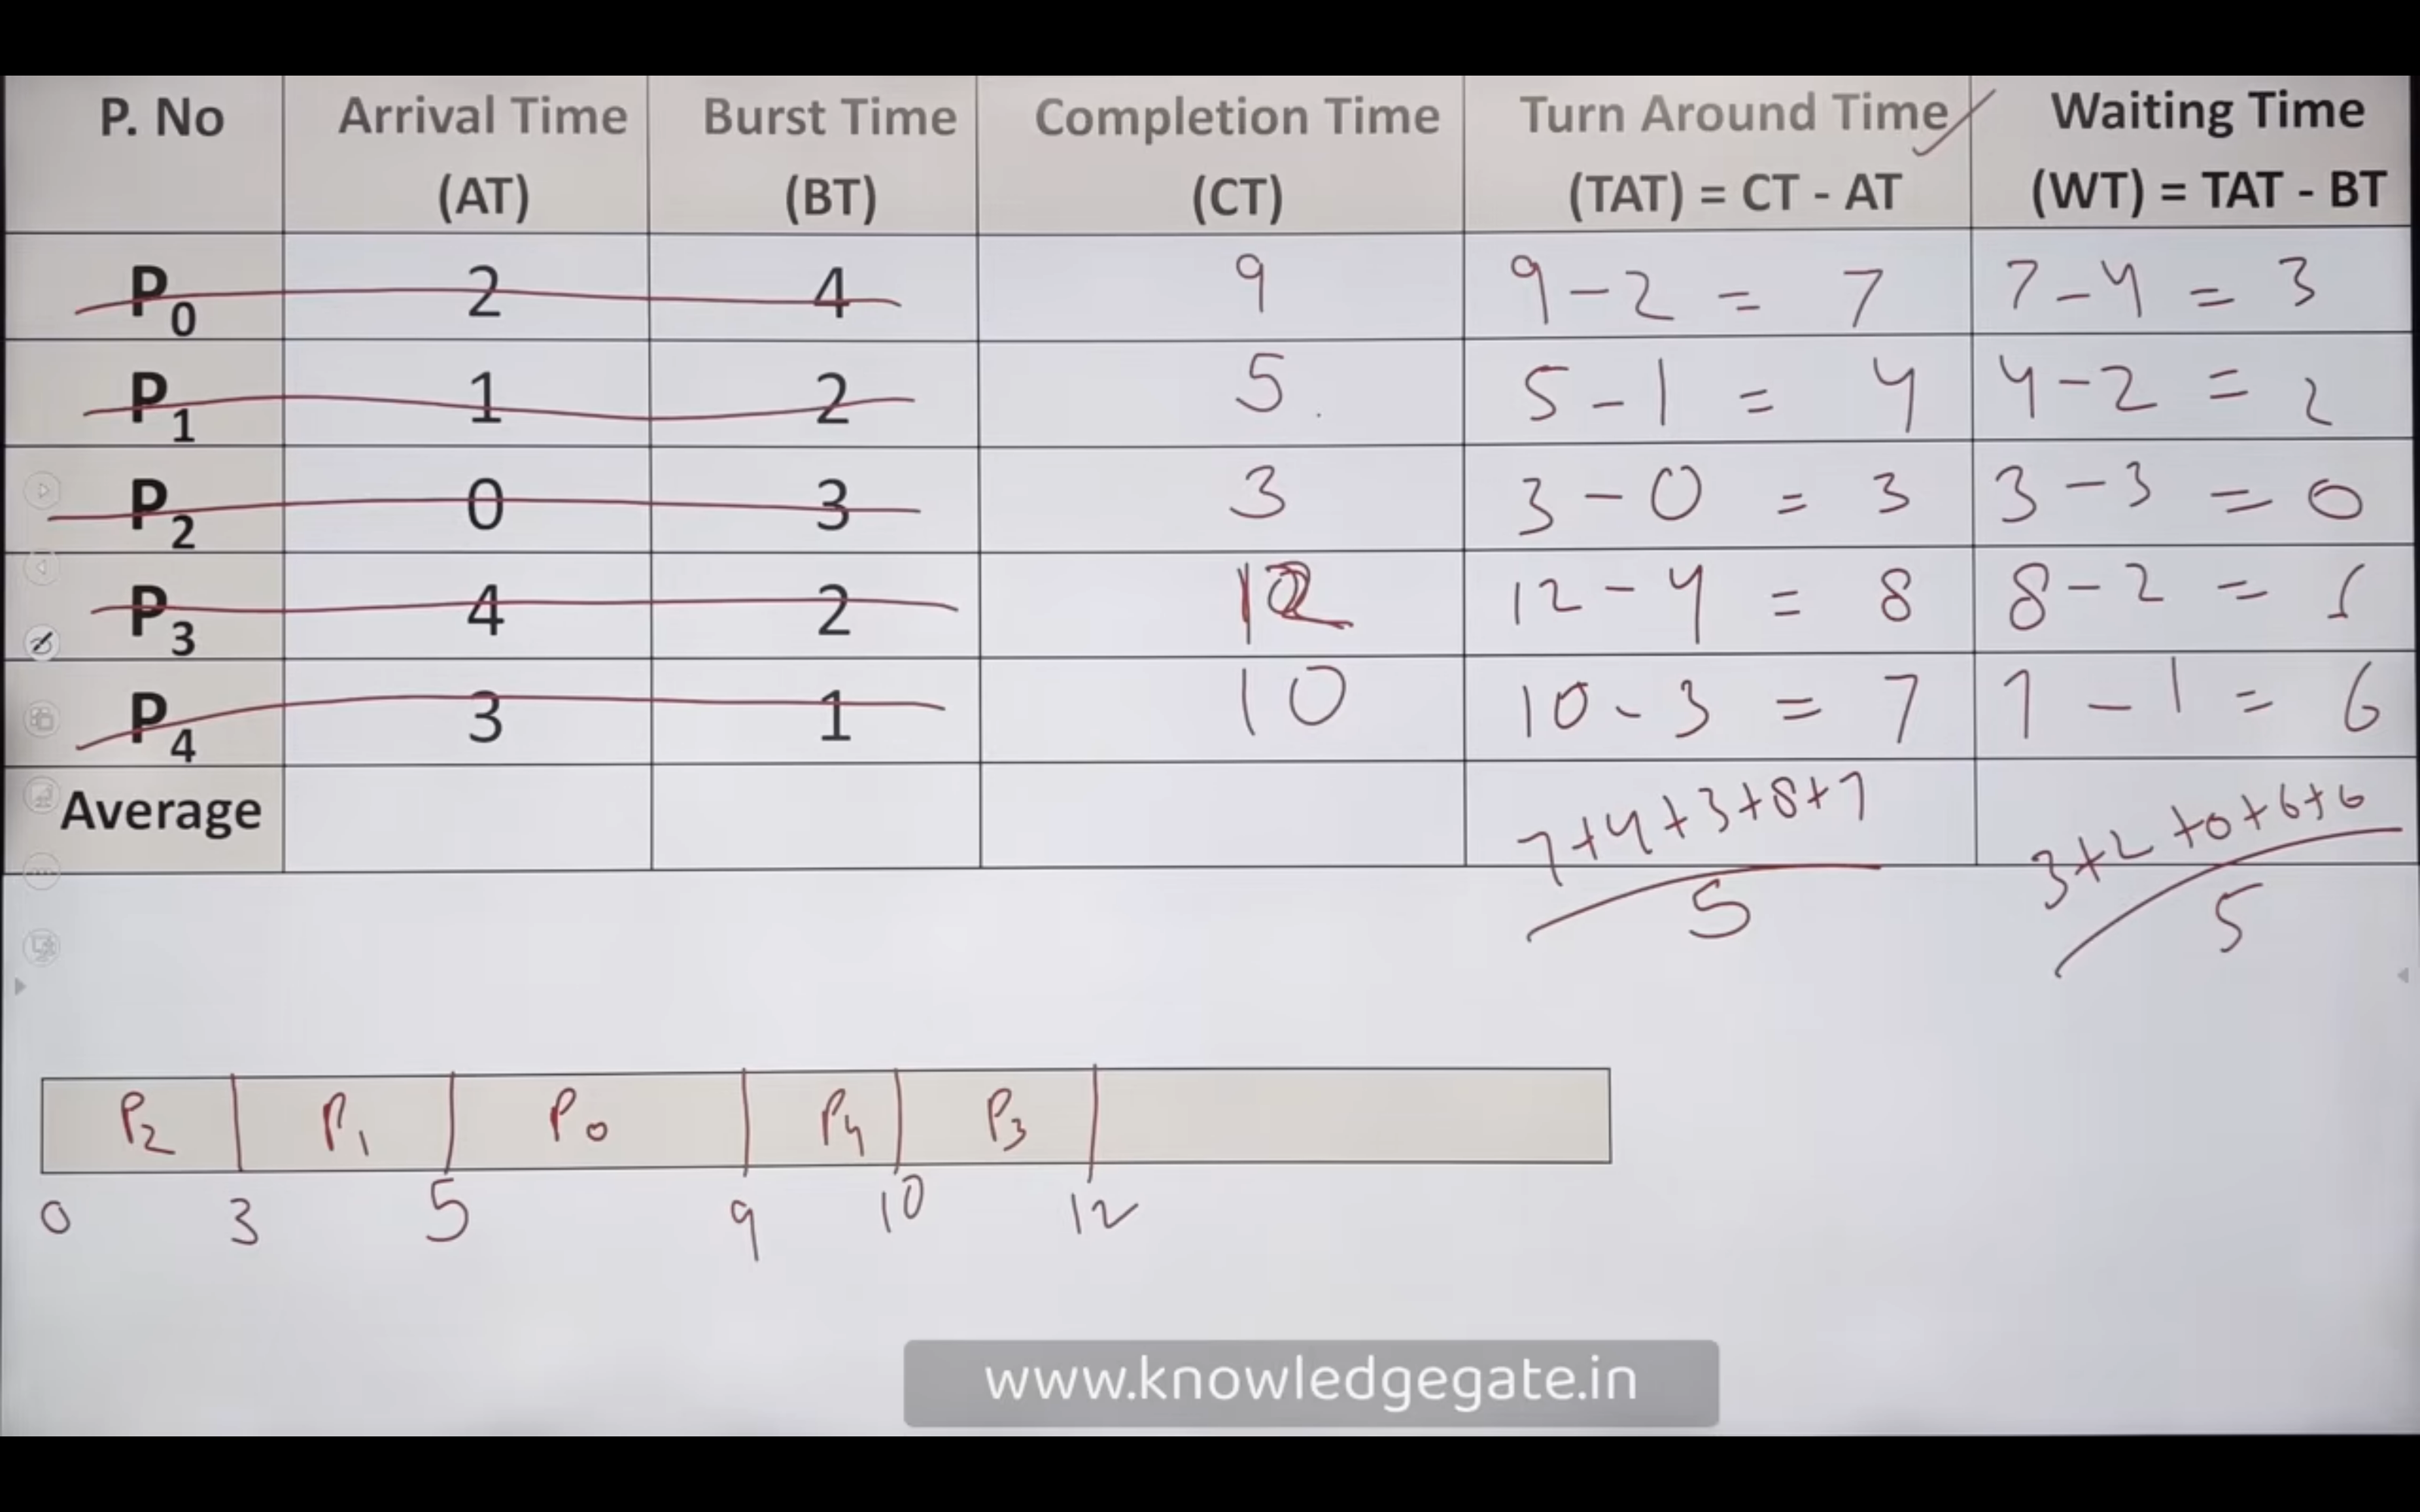 P. No Arrival Time (AT) Burst Time (BT) Completion Time (CT) Turn Around Time (TAT) = CT - AT Waiting Time (WT) = TAT - BT
P0 2 4 9 9 - 2 = 7 7 - 4 = 3
P1 1 2 5 . 5 - 1 = 4 4 - 2 = 2
P2 0 3 3 3 - 0 = 3 3 - 3 = 0
P3 4 2 12 12 - 4 = 8 8 - 2 =
P4 3 1 10 10 - 3 = 7 7 - 1 = 6
Average 7+4+3+8+7 3+2+0+6+6
5 5
P2 P1 P0 P4 P3
0 3 5 9 10 12
www.knowledgegate.in